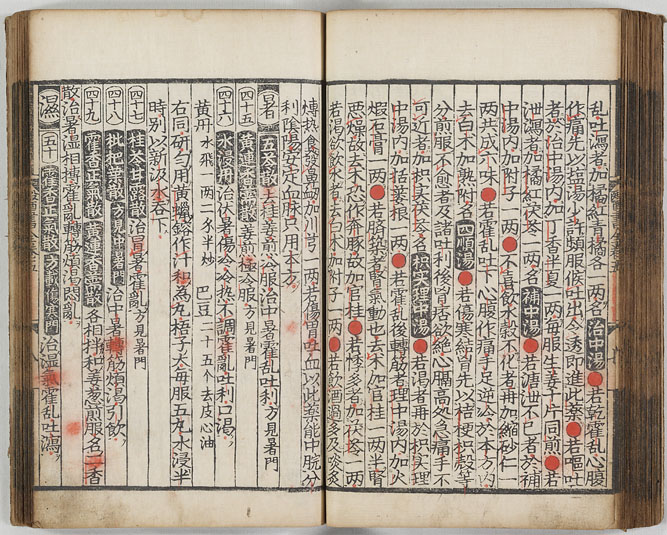 乱吐瀉者加橘紅青橘各一兩名治中湯●若乾霍乱心腹
作痛先以塩湯少許頻服候吐出令透即進此藥●若嘔吐
者於治中湯内加丁香半夏一兩每服生姜十片同煎●若
泄瀉者加橘紅茯苓一兩名補中湯●若溏泄不已者於補
中湯内加附子一兩●不喜飲水穀不化者再加縮砂仁一
兩共成六味●若霍乱吐下心腹作痛手足逆冷於本方内
去白朮加熟附名四順湯●若傷寒結胷先以桔梗枳殻等
分煎服不愈者及諸吐利後胷痞欲絶心膈高起急痛手不
可近者加枳实茯苓名枳实理中湯●若渴者再於枳实理
中湯内加括蔞根一兩●若霍乱後轉筋者理中湯内加火
煆石膏一兩●若臍築者腎氣動也去朮加官桂一兩半腎
惡燥故去朮恐作奔豚故加官桂●若悸多者加茯苓一兩
若渴欲飲水者去白朮加附子一兩●若飲酒過多及炎炙
煿热食發為鼻衂加川芎一兩若傷胃吐血以此藥能中脘分
利陰陽安定血脉只用本方
暑 五苓散去桂姜煎冷服治中暑霍乱吐利方見暑門
四十五 黄連香薷散姜煎極冷服方見暑門
四十六 水浸丹治伏暑傷冷冷热不調霍乱吐利口渴
黄丹水飛一兩二分半炒 巴豆二十五个去皮心油
右同研勻用黄蠟鎔作汁和為丸梧子大每服五丸水浸半
時別以新汲水呑下
四十七 桂苓甘露散治冒暑霍乱方見暑門
四十八 枇杷葉散方見中暑門治中暑轉筋煩渴引飲
四十九 藿香正氣散黄連香薷散各相拌和姜葱煎服名二香
散治暑湿相搏霍亂轉筋煩渴悶亂
濕 五十 藿香正氣散方載傷寒門治濕氣霍乱吐瀉